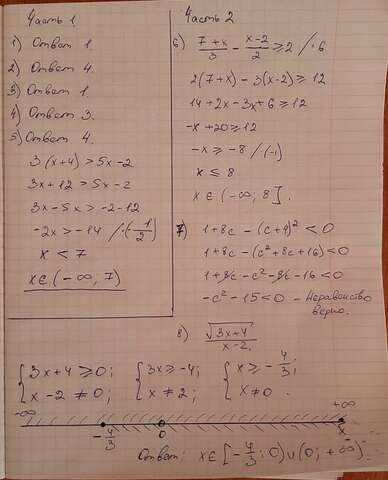 Часть 1
1) Ответ 1.
2) Ответ 4.
3) Ответ 1.
4) Ответ 3.
5) Ответ 4.
3(x+4) > 5x-2
3x+12 > 5x-2
3x-5x > -2-12
-2x > -14 /·(-1/2)
x < 7
x∈(-∞; 7)
Часть 2
6) (7+x)/3 - (x-2)/2 ≥ 2 /·6
2(7+x) - 3(x-2) ≥ 12
14+2x-3x+6 ≥ 12
-x+20 ≥ 12
-x ≥ -8 /(-1)
x ≤ 8
x∈(-∞; 8].
7) 1+8c - (c+4)² < 0
1+8c - (c²+8c+16) < 0
1+8c-c²-8c-16 < 0
-c²-15 < 0 - Неравенство
верно.
8) √(3x+4)/(x-2.)
{3x+4 ≥ 0; x-2 ≠ 0; {3x ≥ -4; x ≠ 2; {x ≥ -4/3; x ≠ 0.
-∞ +∞
-4/3 0 x
Ответ: x∈[-4/3; 0)∪(0; +∞)